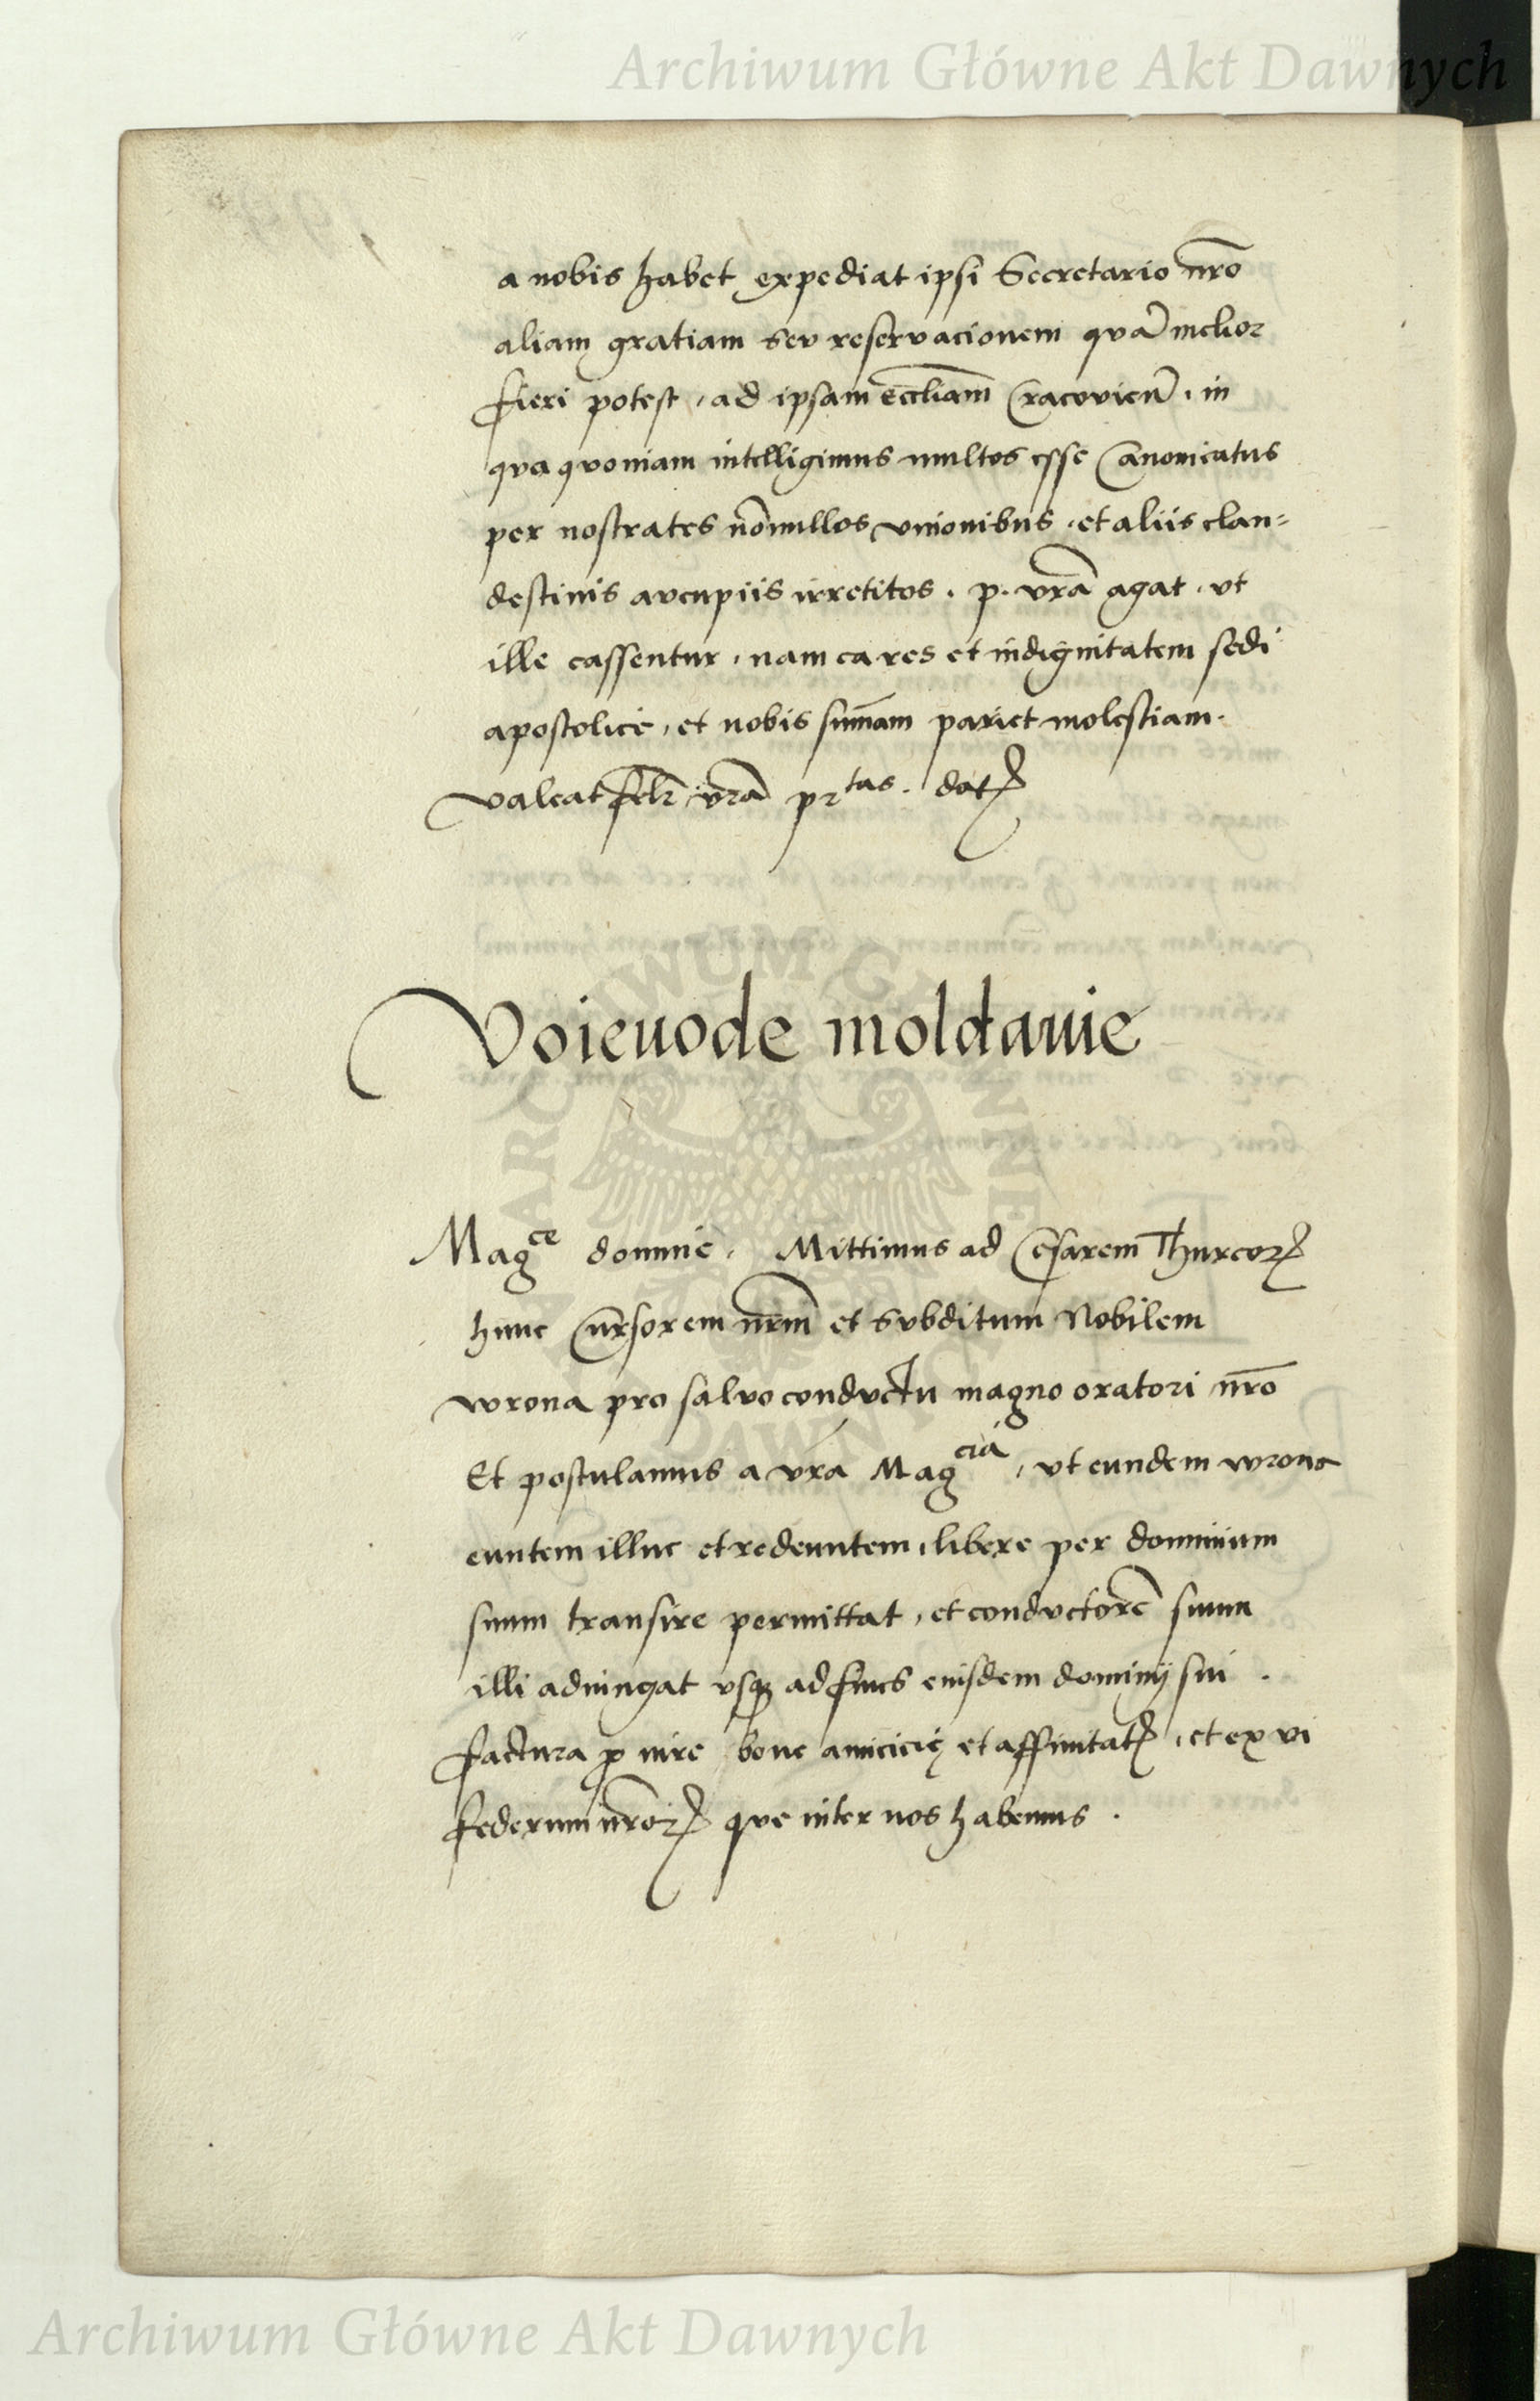 Archiwum Główne Akt Dawnych
a nobis habet expediat ipsi Secretario nr̄o
aliam gratiam seu reservacionem quā melior
fieri potest, ad ipsam eccliam̄ Cracovien̄, in
qua quoniam intelligimus multos esse Canonicatus
per nostrates nōnullos unionibus, et aliis clan=
destinis aucupiis irretitos. p. vr̄a agat, ut
ille cassentur, nam ea res et indignitatem sedi
apostolice, et nobis sum̄am pariet molestiam.
Valeat felr̄ vr̄a prtas. datꝭ
Voievode moldavie
Magce domine. Mittimus ad Cesarem Thurcorꝝ
hunc Cursorem nrm̄ et subditum Nobilem
wrona pro salvo conductu magno oratori nr̄o
Et postulamus a vr̄a Magcia, ut eundem wrona
euntem illuc et redeuntem, libere per dominium
suum transire permittat, et conductorē suum
illi adiungat usqꝫ ad fines eiusdem dominij sui.
factura ꝓ iure bone amicicię et affinitatꝭ, et ex vi
federum nr̄orꝝ que inter nos habemus.
Archiwum Główne Akt Dawnych